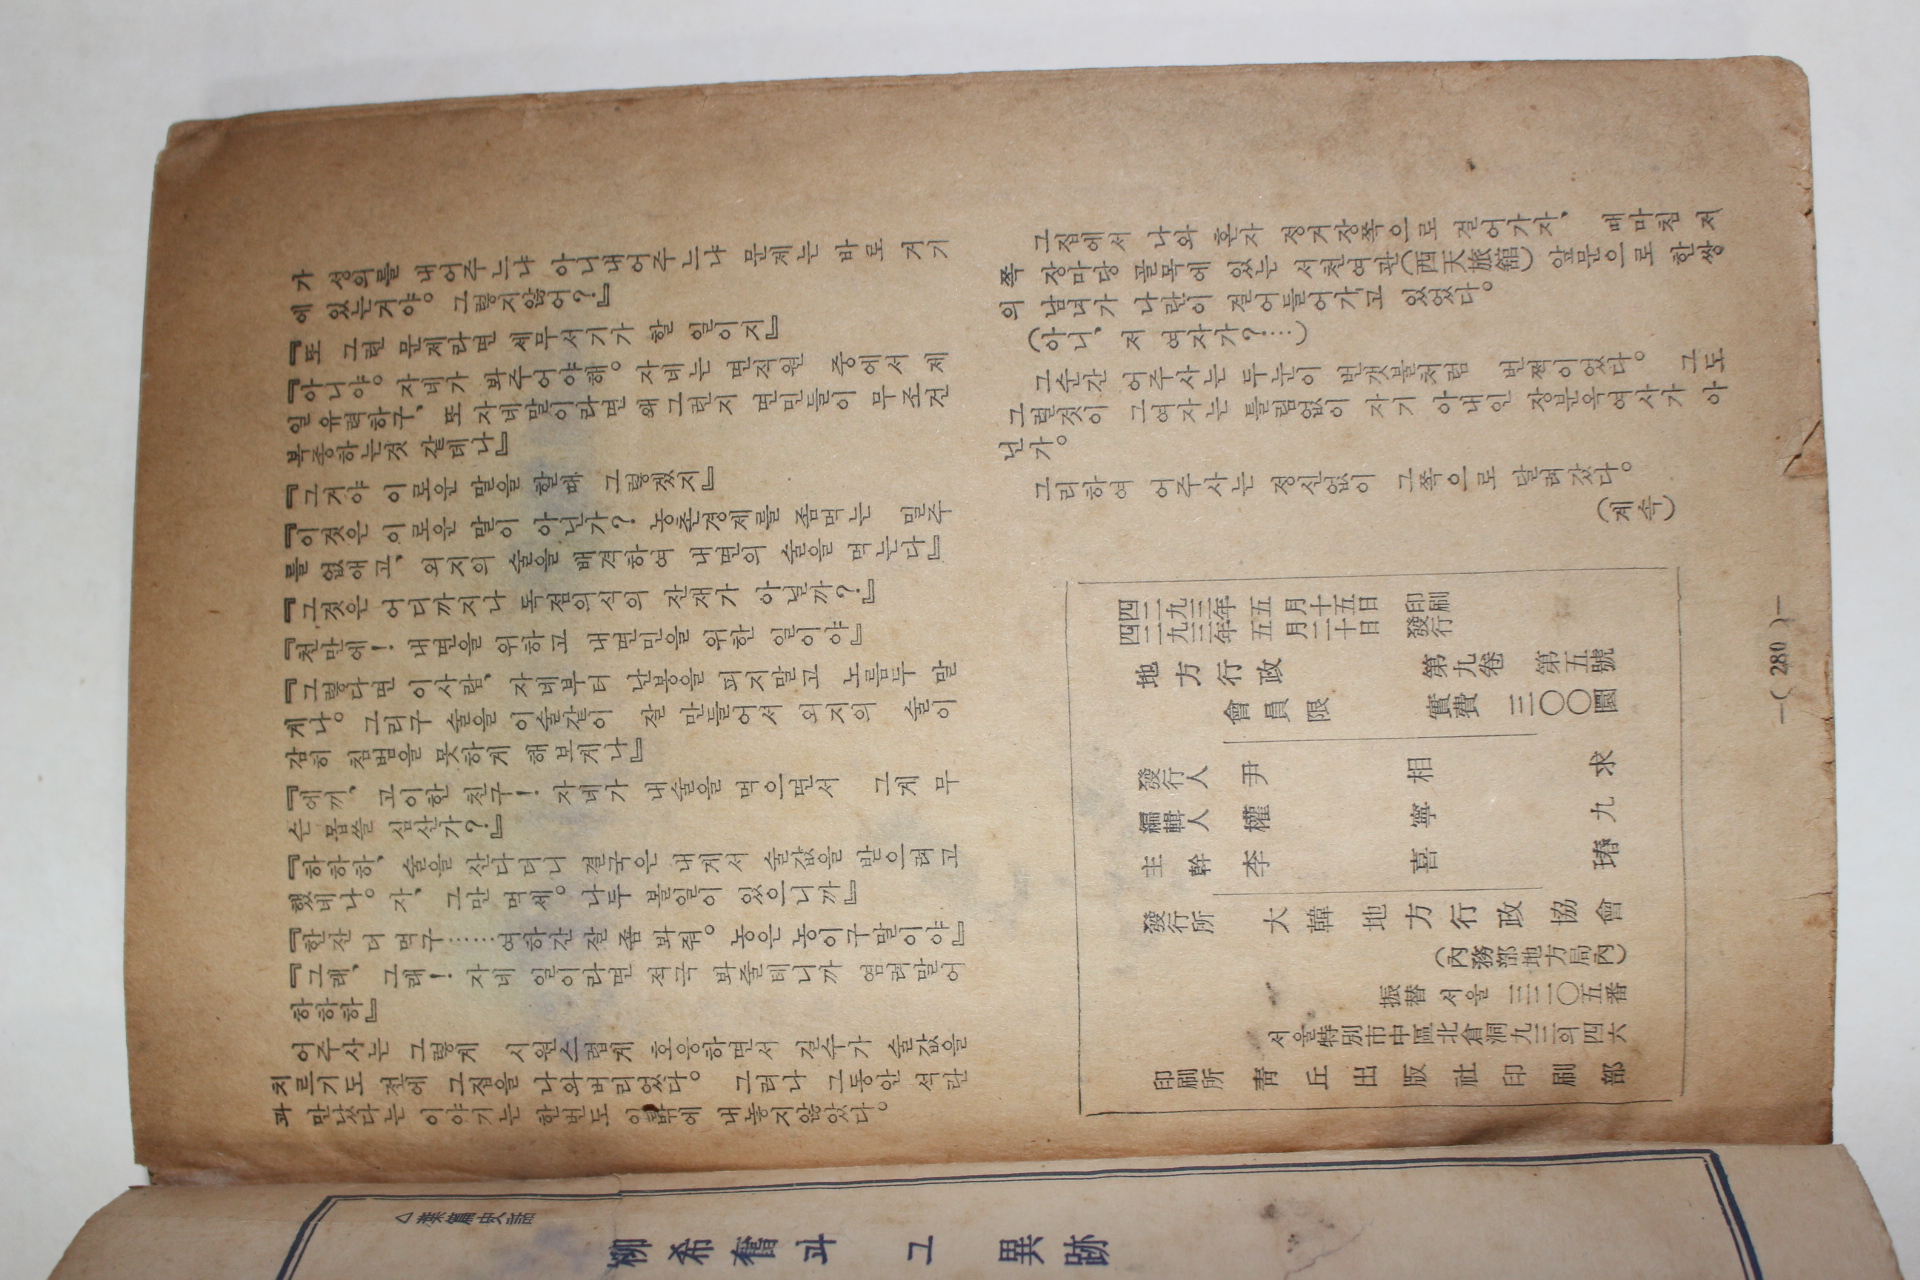 가 성의를 내어주느냐 아니내어주느냐 문제는 바로 거기
에 있는거야。 그렇지않어?』
『또 그런 문제라면 세무서기가 할 일이지』
『아니야。 자네가 봐주어야해。 자네는 면직원 중에서 제
일 유력하구、 또 자네말이라면 왜그런지 면민들이 무조건
복종하는것 같데나』
『그거야 이로운 말을 할때 그렇겠지』
『이것은 이로운 말이 아닌가? 농촌경제를 좀먹는 밀주
를 없애고、 외지의 술을 배격하여 내면의 술을 먹는다』
『그것은 어디까지나 독점의식의 잔재가 아닐까?』
『천만에! 내면을 위하고 내면민을 위한 일이야』
『그렇다면 이사람、 자네부터 난봉을 피지말고 노름두 말
게나。 그리구 술을 이술같이 잘 만들어서 외지의 술이
감히 침범을 못하게 해보게나』
『에끼、 고이한 친구! 자네가 내술을 먹으면서 그게 무
슨 몹쓸 심산가?』
『하하하、 술을 산다더니 결국은 내게서 술값을 받으려고
했네나。 자、 그만 먹세。 나두 볼일이 있으니까』
『한잔 더 먹구……여하간 잘 좀 봐줘。 농은 농이구말이야』
『그래、 그래! 자네 일이라면 적극 봐줄테니까 염려말어
하하하』
어주사는 그렇게 시원스럽게 호응하면서 길수가 술값을
치르기도 전에 그집을 나와버리었다。 그러나 그동안 석란
과 만났다는 이야기는 한번도 입밖에 내놓지않았다。
그집에서 나와 혼자 정거장쪽으로 걸어가자、 때마침 저
쪽 장마당 골목에 있는 서천여관(西天旅館) 앞문으로 한쌍
의 남녀가 나란이 걸어들어가고 있었다。
(아니、 저 여자가?……)
그순간 어주사는 두눈이 번갯불처럼 번쩍이었다。 그도
그럴것이 그여자는 틀림없이 자기 아내인 장분옥여사가 아
닌가。
그리하여 어주사는 정신없이 그쪽으로 달려갔다。
(계속)
四二九三年 五月十五日 印刷
四二九三年 五月二十日 發行
地方行政 第九卷 第五號
會員限 實費 三〇〇圜
發行人 尹相求
編輯人 權寧九
主幹 李喜瑃
發行所 大韓地方行政協會
(內務部地方局內)
振替 서울 三三二〇五番
서울特別市中區北倉洞九三의四六
印刷所 靑丘出版社印刷部
—( 280 )—
柳希奮과 그 異跡